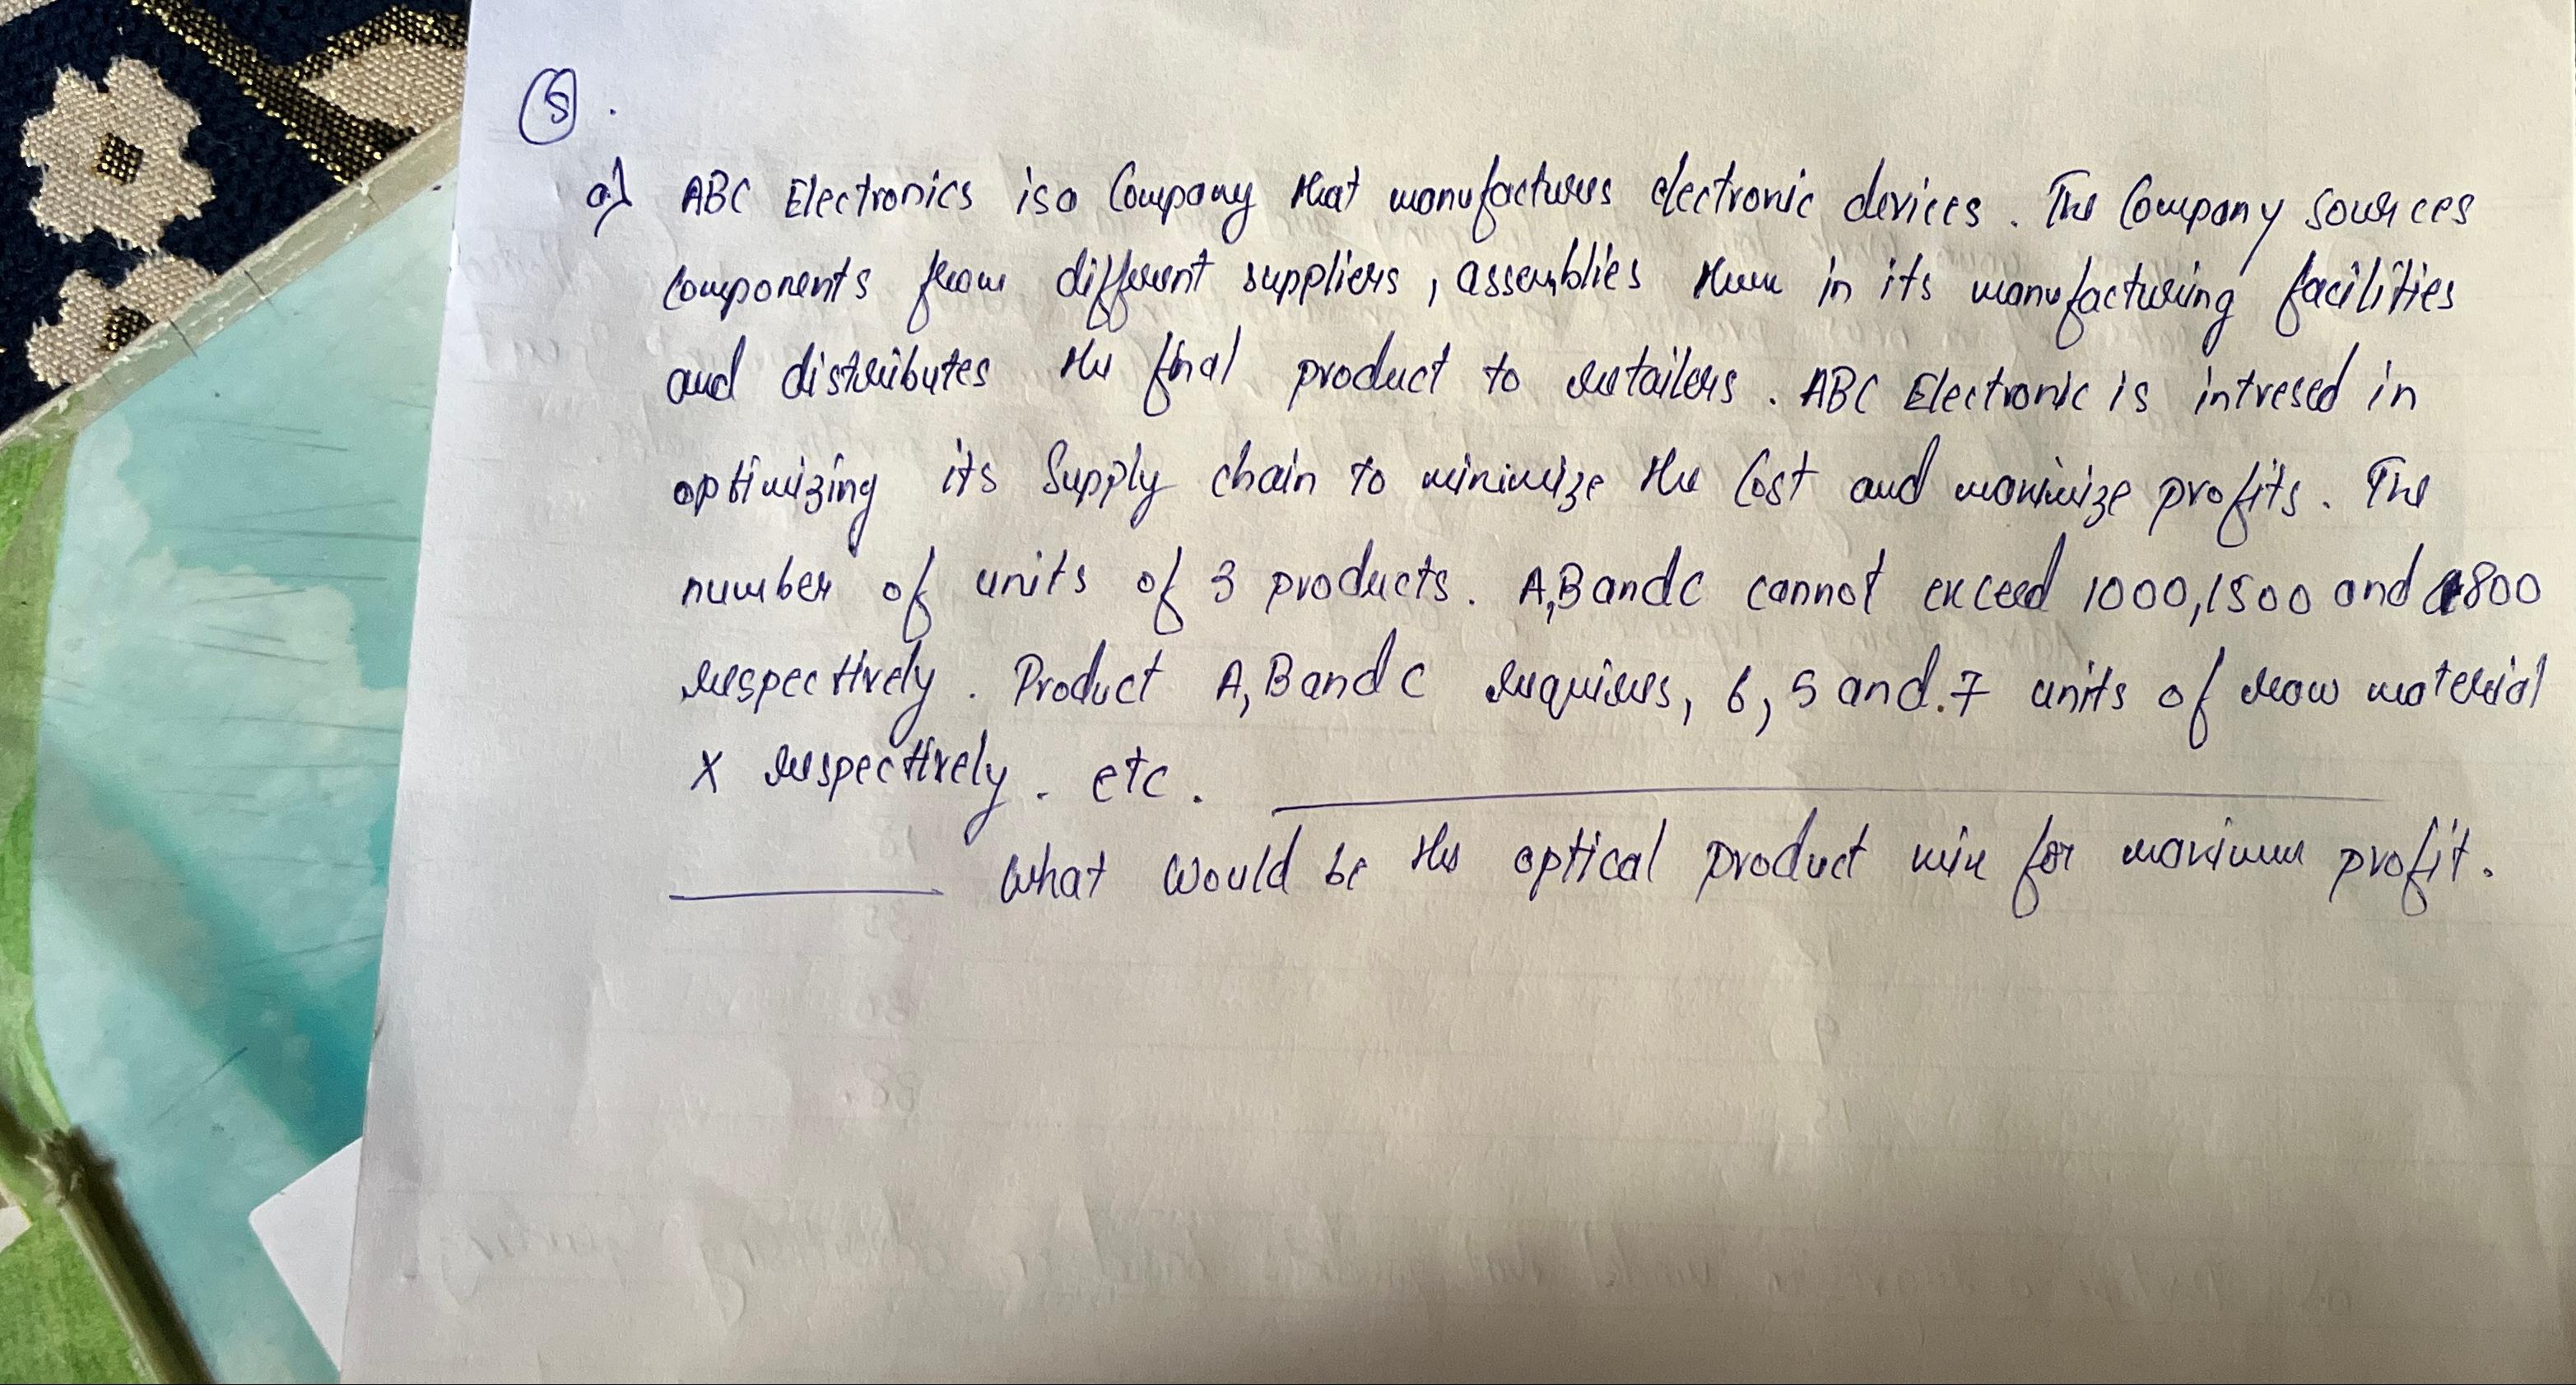 5.
a) ABC Electronics is a Company that manufactures electronic devices. The Company sources
components from different suppliers, assemblies them in its manufacturing facilities
and distributes the final product to retailers. ABC Electronic is intresed in
optimizing its Supply chain to minimize the Cost and maximize profits. The
number of units of 3 products. A,B and C cannot exceed 1000,1500 and 800
respectively. Product A, B and C requires, 6, 5 and.7 units of raw material
X respectively. etc.
What would be the optical product mix for maximum profit.